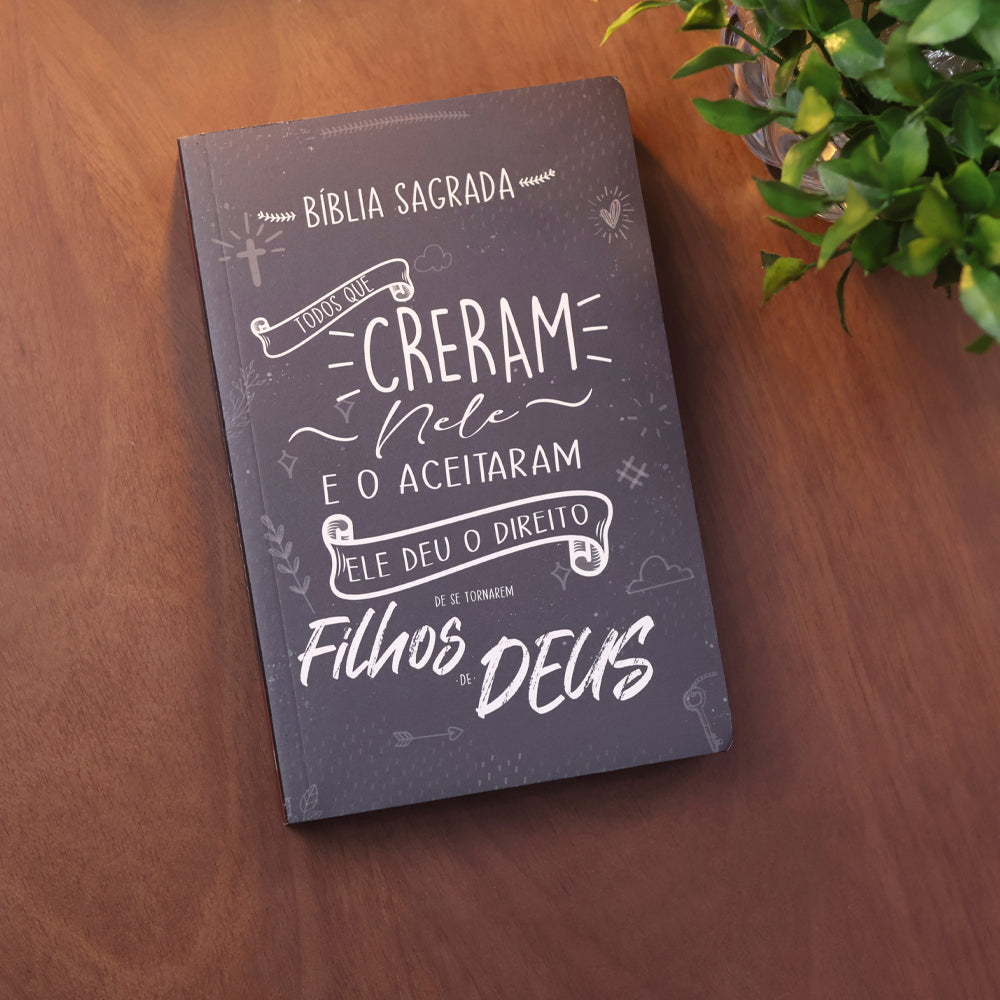 BÍBLIA SAGRADA
TODOS QUE
CRERAM
Nele
E O ACEITARAM
ELE DEU O DIREITO
DE SE TORNAREM
Filhos
·DE·
DEUS